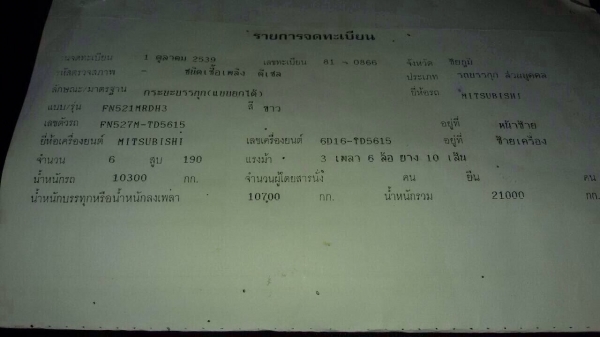 รายการจดทะเบียน
จดทะเบียน 1 ตุลาคม 2539 เลขทะเบียน 81 - 0866 จังหวัด ชัยภูมิ
- ชนิดเชื้อเพลิง ดีเซล ประเภท รถบรรทุก ส่วนบุคคล
ลักษณะ/มาตรฐาน กระบะบรรทุก(แยยกได้) ยี่ห้อรถ MITSUBISHI
แบบ/รุ่น FN521MRDH3 สี ขาว
เลขตัวรถ FN527M-TD5615 อยู่ที่ หน้าซ้าย
ยี่ห้อเครื่องยนต์ MITSUBISHI เลขเครื่องยนต์ 6D16-TD5615 อยู่ที่ ซ้ายเครื่อง
จำนวน 6 สูบ 190 แรงม้า 3 เพลา 6 ล้อ ยาง 10 เส้น
น้ำหนักรถ 10300 กก. จำนวนผู้โดยสารนั่ง คน ยืน คน
น้ำหนักบรรทุกหรือน้ำหนักลงเพลา 10700 กก. น้ำหนักรวม 21000 กก.